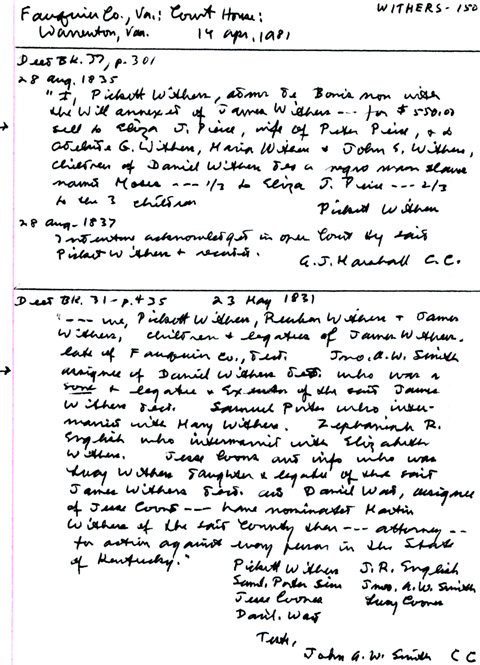 WITHERS - 150
Fauquier Co., Va.: Court House:
Warrenton, Va. 14 Apr, 1981
Deed Bk. 37, p. 301
28 Aug. 1835
"I, Pickett Withers, admr de Bonis non with
the Will annexed of James Withers --- for $550.00
sell to Eliza J. Peirce, wife of Peter Peirce, & to
G. Withers, Maria Withers & John S. Withers,
children of Daniel Withers decd a negro man slave
named Moses --- 1/3 to Eliza J. Peirce --- 2/3
to the 3 children
Pickett Withers
28 Aug. 1837
Indenture acknowledged in open Court by said
Pickett Withers & records.
A. J. Marshall C. C.
Deed Bk. 31 - p. 435 23 May 1831
"--- we, Pickett Withers, Reuben Withers & James
Withers, children & legatees of James Withers.
late of Fauquier Co., decd. Jno. A. W. Smith
assignee of Daniel Withers decd. who was a
sone & legatee & Exeutor of the said James
Withers decd. Samuel Porter who inter-
married with Mary Withers. Zephaniah R.
English who intermarried with Elizabeth
Withers. Jesse Coons and wife who was
Lucy Withers daughter & legatee of the said
James Withers decd. and Daniel Ward, assignee
of Jesse Coons --- have nominated Martin
Withers of the said County their --- attorney --
for action against every person in the State
of Kentucky."
Pickett Withers J. R. English
Saml. Porter Sen Jno. A. W. Smith
Jesse Coones Lucy Coones
Danl. Ward
Teste,
John A. W. Smith C C